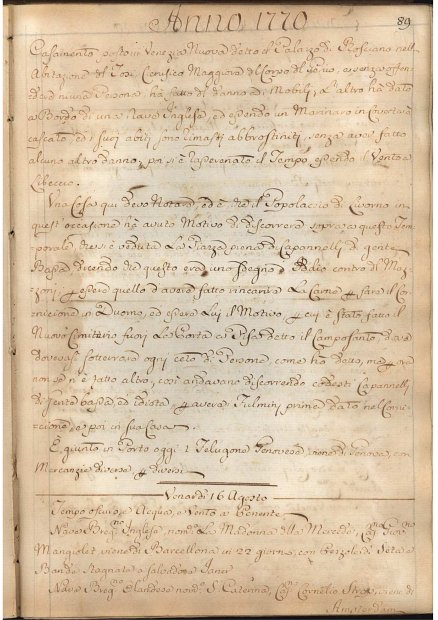 Anno 1770
89
Casamento posto in Venezia Nuova detto il Palazzo di Rosciano nell
Abitazione del Cerusico Maggiore del Corpo del Genio, e senza offen
dere niuna Persona ha fatto di danno ai Mobili; L'altro ha dato
a Bordo di una Nave Inglese, ed essendo un Marinaro in Covertina
cascato, ed i suoi abiti sono rimasti abbrostiniti, senza aver fatto
alcuno altro danno, poi si è rasserenato il Tempo essendo il Vento a
Libeccio.
Una Cosa qui devo Notare, ed è che il Popolaccio di Livorno in
quest'occasione ha avuto Motivo di discorrere sopra a questo Tem
porale, che si è veduta La Piazza piena di Capannelli di gente
Bassa dicendo che questo era uno sdegno d'Iddio contro di Maz
zoni, essere quello d'avere fatto rincarire La Carne fare il Co
in Duomo, ed essere Lui il Motivo cui è stato fatto il
Nuovo Cimiterio fuori La Porta a Pisa detto il Camposanto, dove
dovevasi sotterrare ogni ceto di Persone, come ho detto, ma
non se n'è fatto altro, così andavano discorrendo codesti Capannelli
di gente bassa, ed idiota avere i Fulmini prima dato nel
e poi in sua Casa.
È giunto in Porto oggi 1 Felugone Genovese da Genova, con
Mercanzie diverse diversi
Venerdì 16 Agosto
Tempo oscuro e Acqua, e Vento a Ponente
Nave Inglese nom La Madonna della Mercede,
viene di Barcellona in 22 giorni, con Pezzole di Seta e
Bande Stagnate a Salvadore Janer
Nave Olandese nom S. Caterina, Cornelio viene di
Amsterdam